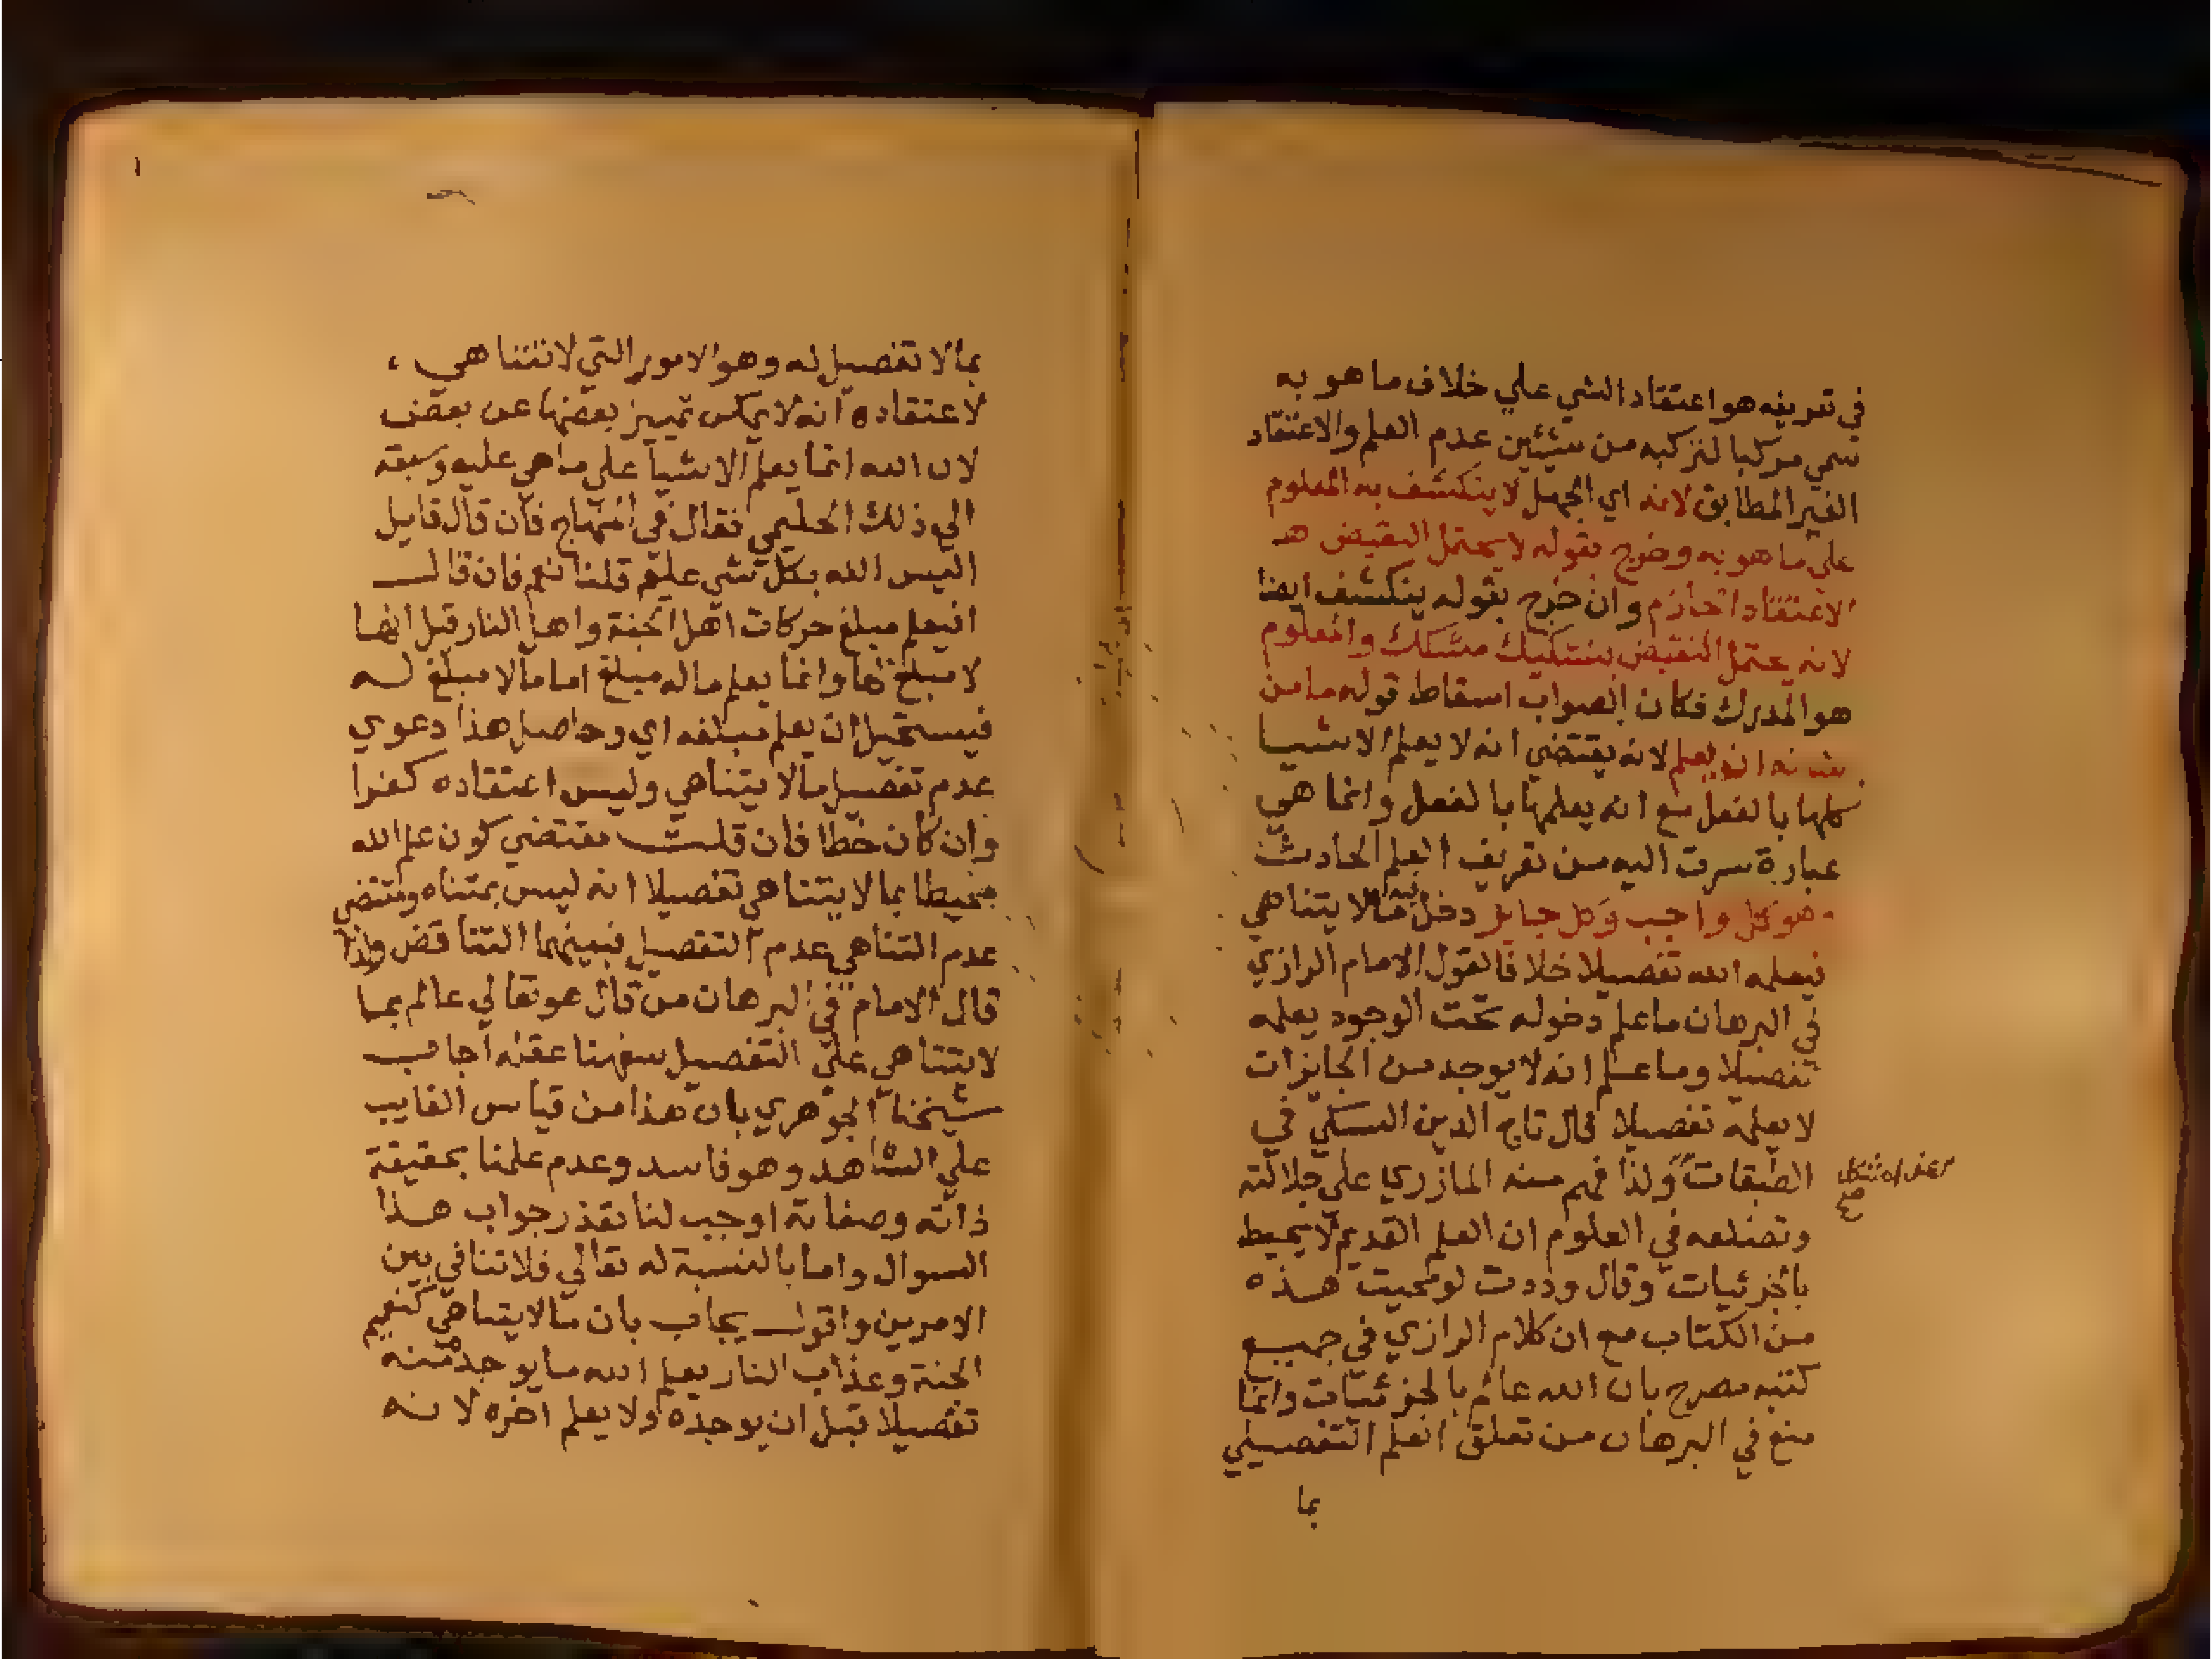 في تعريفه هو اعتقاد الشي علي خلاف ما هو به
سمي مركبا لتركبه من شيئين عدم العلم والاعتقاد
الغير المطابق لانه اي الجهل لا ينكشف به المعلوم
علي ما هو به وخرج بقوله لا يحتمل النقيض
الاعتقاد الجازم وان خرج بقوله ينكشف ايضا
لانه يحتمل النقيض بتشكيك مشكك والمعلوم
هو المدرك فكان الصواب اسقاط قوله ما من
شانه ان يعلم لانه يقتضي انه لا يعلم الاشيا
كلها بالفعل مع انه يعلمها بالفعل وانما هي
عبارة سرت اليه من تعريف العلم الحادث
وهو كل واجب وكل جايز دخل فيه ما لا يتناهي
فيعلمه الله تفصيلا خلافا لقول الامام الرازي
في البرهان ما علم دخوله تحت الوجود يعلمه
تفصيلا وما علم انه لا يوجد من الجايزات
لا يعلمه تفصيلا قال تاج الدين السبكي في
الطبقات ولذا فهم منه المازري علي جلالته
وتضلعه في العلوم ان العلم القديم لا يحيط
بالجزئيات وقال وددت لو محيت هذه
من الكتاب مع ان كلام الرازي في جميع
كتبه مصرح بان الله عالم بالجزئيات وانما
منع في البرهان من تعلق العلم التفصيلي
بما
بما لا تفصيل له وهو الامور التي لا تتناهي
لاعتقاده انه لا يمكن تمييز بعضها عن بعض
لان الله انما يعلم الاشيا علي ما هي عليه وسبقه
الي ذلك الحليمي فقال في المنهاج فان قال قايل
اليس الله بكل شي عليم قلنا نعم فان قال
افيعلم مبلغ حركات اهل الجنة واهل النار قيل انها
لا مبلغ لها وانما يعلم ما له مبلغ اما ما لا مبلغ له
فيستحيل ان يعلم مبلغه اي وحاصل هذا دعوي
عدم تفصيل ما لا يتناهي وليس اعتقاده كفرا
وان كان خطا فان قلت مقتضي كون علم الله
محيطا بما لا يتناهي تفصيلا انه ليس بمتناه ومقتضي
عدم التناهي عدم التفصيل فبينهما التناقض ولذا
قال الامام في البرهان من قال هو تعالي عالم بما
لا يتناهي علي التفصيل سفهنا عقله اجاب
شيخنا الجوهري بان هذا من قياس الغايب
علي الشاهد وهو فاسد وعدم علمنا بحقيقة
ذاته وصفاته اوجب لنا تعذر جواب هذا
السوال واما بالنسبة له تعالي فلا تنافي بين
الامرين واقول يجاب بان ما لا يتناهي كنعيم
الجنة وعذاب النار يعلم الله ما يوجد منه
تفصيلا قبل ان يوجده ولا يعلم اخره لانه